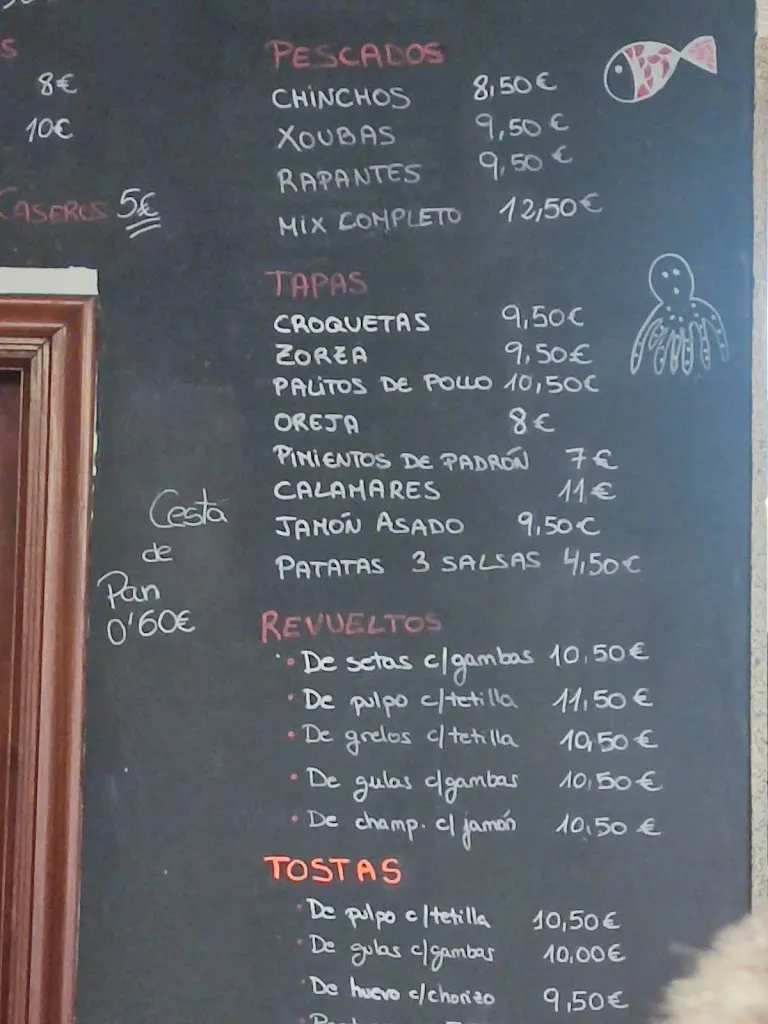 S
8€
10€
CASEROS 5€
Cesta
de
Pan
0'60€
PESCADOS
CHINCHOS 8,50€
XOUBAS 9,50€
RAPANTES 9,50€
MIX COMPLETO 12,50€
TAPAS
CROQUETAS 9,50€
ZORZA 9,50€
PALITOS DE POLLO 10,50€
OREJA 8€
PIMIENTOS DE PADRÓN 7€
CALAMARES 11€
JAMÓN ASADO 9,50€
PATATAS 3 SALSAS 4,50€
REVUELTOS
• De setas c/gambas 10,50€
• De pulpo c/tetilla 11,50€
• De grelos c/tetilla 10,50€
• De gulas c/gambas 10,50€
• De champ. c/ jamón 10,50€
TOSTAS
• De pulpo c/tetilla 10,50€
• De gulas c/gambas 10,00€
• De huevo c/chorizo 9,50€